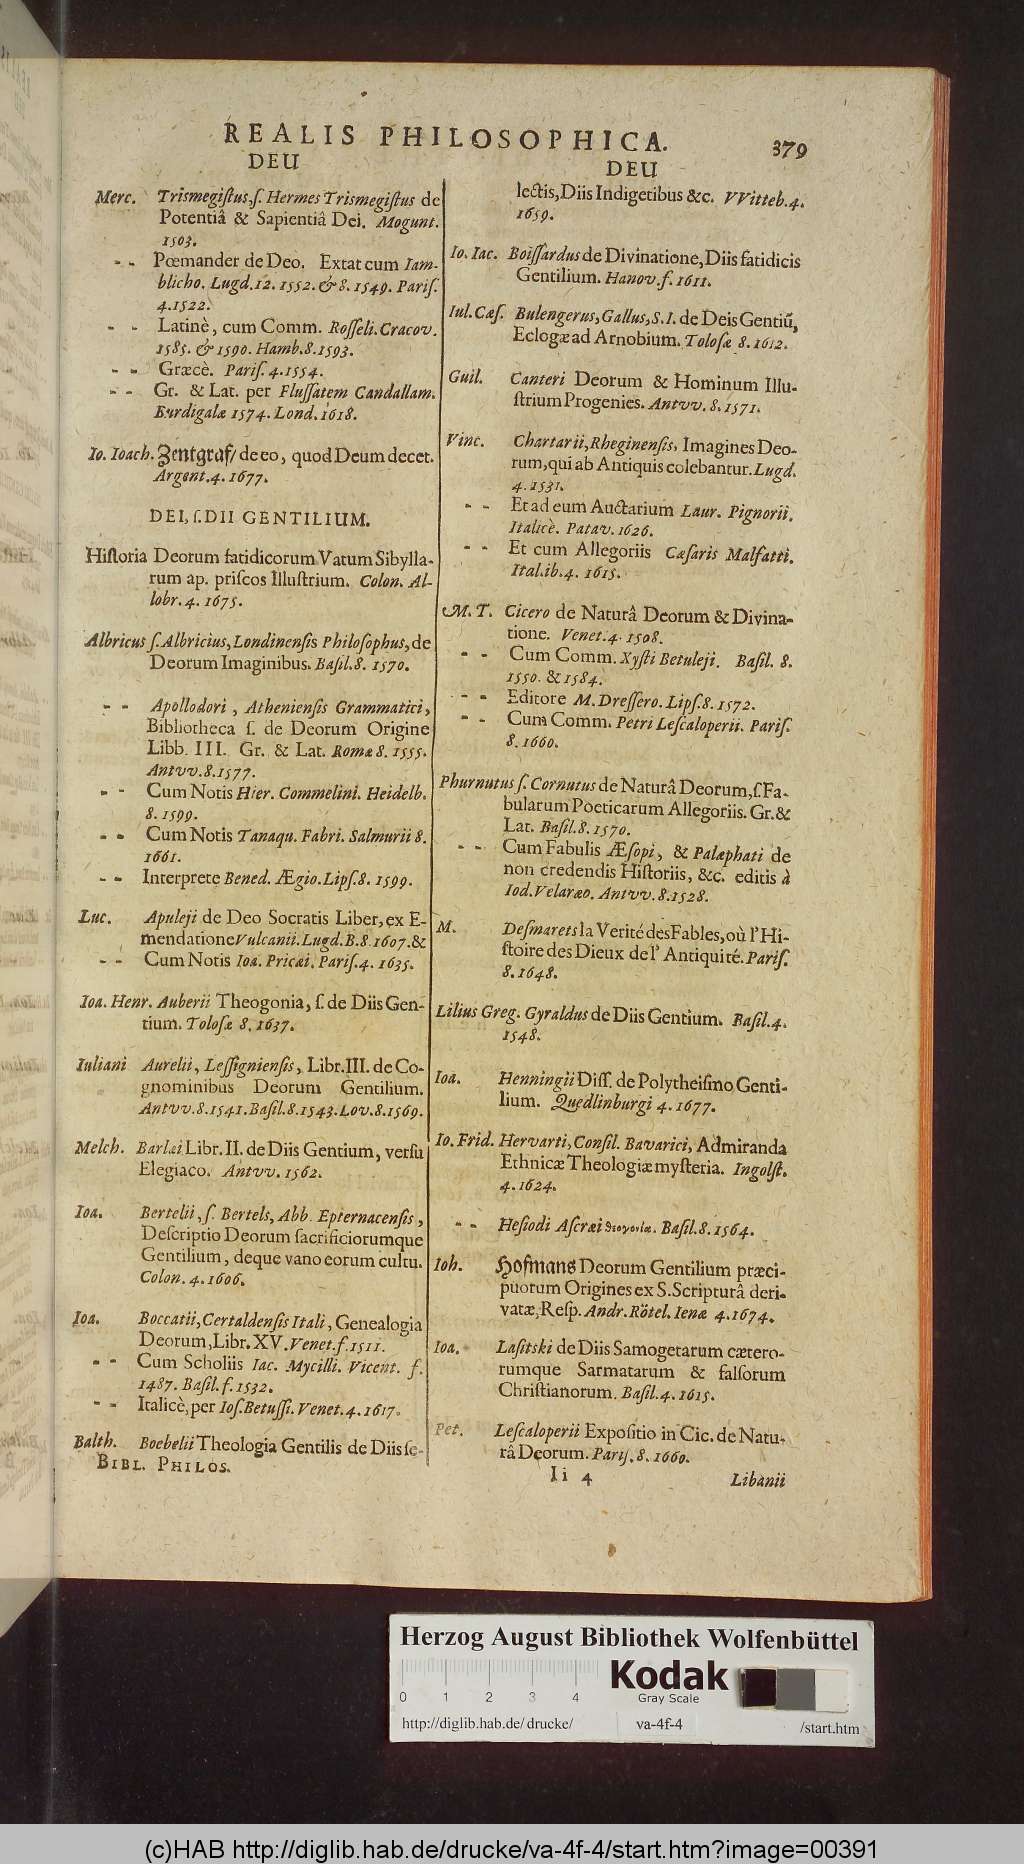 REALIS PHILOSOPHICA. 379
DEU
Merc. Trismegistus, ſ. Hermes Trismegiſtus de
Potentiâ & Sapientiâ Dei. Mogunt.
1503.
- - Pœmander de Deo. Extat cum Iam-
blicho. Lugd. 12. 1552. & 8. 1549. Pariſ.
4. 1522.
- - Latinè, cum Comm. Roſſeli. Cracov.
1585. & 1590. Hamb. 8. 1593.
- - Græcè. Pariſ. 4. 1554.
- - Gr. & Lat. per Fluſſatem Candallam.
Burdigalæ 1574. Lond. 1618.
Io. Ioach. Zentgraf/ de eo, quod Deum decet.
Argent. 4. 1677.
DEI, ſ. DII GENTILIUM.
Hiſtoria Deorum fatidicorum Vatum Sibylla-
rum ap. priſcos Illuſtrium. Colon. Al-
lobr. 4. 1675.
Albricus ſ. Albricius, Londinenſis Philoſophus, de
Deorum Imaginibus. Baſil. 8. 1570.
- - Apollodori, Athenienſis Grammatici,
Bibliotheca ſ. de Deorum Origine
Libb. III. Gr. & Lat. Romæ 8. 1555.
Antvv. 8. 1577.
- - Cum Notis Hier. Commelini. Heidelb.
8. 1599.
- - Cum Notis Tanaqu. Fabri. Salmurii 8.
1661.
- - Interprete Bened. Ægio. Lipſ. 8. 1599.
Luc. Apuleji de Deo Socratis Liber, ex E-
mendatione Vulcanii. Lugd. B. 8. 1607. &
- - Cum Notis Ioa. Pricæi. Pariſ. 4. 1635.
Ioa. Henr. Auberii Theogonia, ſ. de Diis Gen-
tium. Toloſæ 8. 1637.
Iuliani Aurelii, Leſſignienſis, Libr. III. de Co-
gnominibus Deorum Gentilium.
Antvv. 8. 1541. Baſil. 8. 1543. Lov. 8. 1569.
Melch. Barlæi Libr. II. de Diis Gentium, verſu
Elegiaco. Antvv. 1562.
Ioa. Bertelii, ſ. Bertels, Abb. Epternacenſis,
Deſcriptio Deorum ſacrificiorumque
Gentilium, deque vano eorum cultu.
Colon. 4. 1606.
Ioa. Boccatii, Certaldenſis Itali, Genealogia
Deorum, Libr. XV. Venet. f. 1511.
- - Cum Scholiis Iac. Mycilli. Vicent. f.
1487. Baſil. f. 1532.
- - Italicè, per Ioſ. Betuſſi. Venet. 4. 1617.
Balth. Boebelii Theologia Gentilis de Diis ſe-
BIBL. PHILOS.
DEU
lectis, Diis Indigetibus &c. VVitteb. 4.
1659.
Io. Iac. Boiſſardus de Divinatione, Diis fatidicis
Gentilium. Hanov. f. 1611.
Iul. Cæſ. Bulengerus, Gallus, S. I. de Deis Gentiū,
Eclogæ ad Arnobium. Toloſæ 8. 1612.
Guil. Canteri Deorum & Hominum Illu-
ſtrium Progenies. Antvv. 8. 1571.
Vinc. Chartarii, Rheginenſis, Imagines Deo-
rum, qui ab Antiquis colebantur. Lugd.
4. 1531.
- - Et ad eum Auctarium Laur. Pignorii.
Italicè. Patav. 1626.
- - Et cum Allegoriis Cæſaris Malfatti.
Ital. ib. 4. 1615.
M. T. Cicero de Naturâ Deorum & Divina-
tione. Venet. 4. 1508.
- - Cum Comm. Xyſti Betuleji. Baſil. 8.
1550. & 1584.
- - Editore M. Dreſſero. Lipſ. 8. 1572.
- - Cum Comm. Petri Leſcaloperii. Pariſ.
8. 1660.
Phurnutus ſ. Cornutus de Naturâ Deorum, ſ. Fa-
bularum Poeticarum Allegoriis. Gr. &
Lat. Baſil. 8. 1570.
- - Cum Fabulis Æſopi, & Palæphati de
non credendis Hiſtoriis, &c. editis à
Iod. Velaræo. Antvv. 8. 1528.
M. Deſmarets la Verité des Fables, où l'Hi-
ſtoire des Dieux de l' Antiquité. Pariſ.
8. 1648.
Lilius Greg. Gyraldus de Diis Gentium. Baſil. 4.
1548.
Ioa. Henningii Diſſ. de Polytheiſmo Genti-
lium. Quedlinburgi 4. 1677.
Io. Frid. Hervarti, Conſil. Bavarici, Admiranda
Ethnicæ Theologiæ myſteria. Ingolſt.
4. 1624.
- - Heſiodi Aſcræi θεογονία. Baſil. 8. 1564.
Ioh. Hofmans Deorum Gentilium præci-
puorum Origines ex S. Scripturâ deri-
vatæ, Reſp. Andr. Rötel. Ienæ 4. 1674.
Ioa. Laſitski de Diis Samogetarum cætero-
rumque Sarmatarum & falſorum
Chriſtianorum. Baſil. 4. 1615.
Pet. Leſcaloperii Expoſitio in Cic. de Natu-
râ Deorum. Pariſ. 8. 1660.
Ii 4 Libanii
Herzog August Bibliothek Wolfenbüttel
Kodak
Gray Scale
0 1 2 3 4
http://diglib.hab.de/drucke/ va-4f-4 /start.htm
(c)HAB http://diglib.hab.de/drucke/va-4f-4/start.htm?image=00391